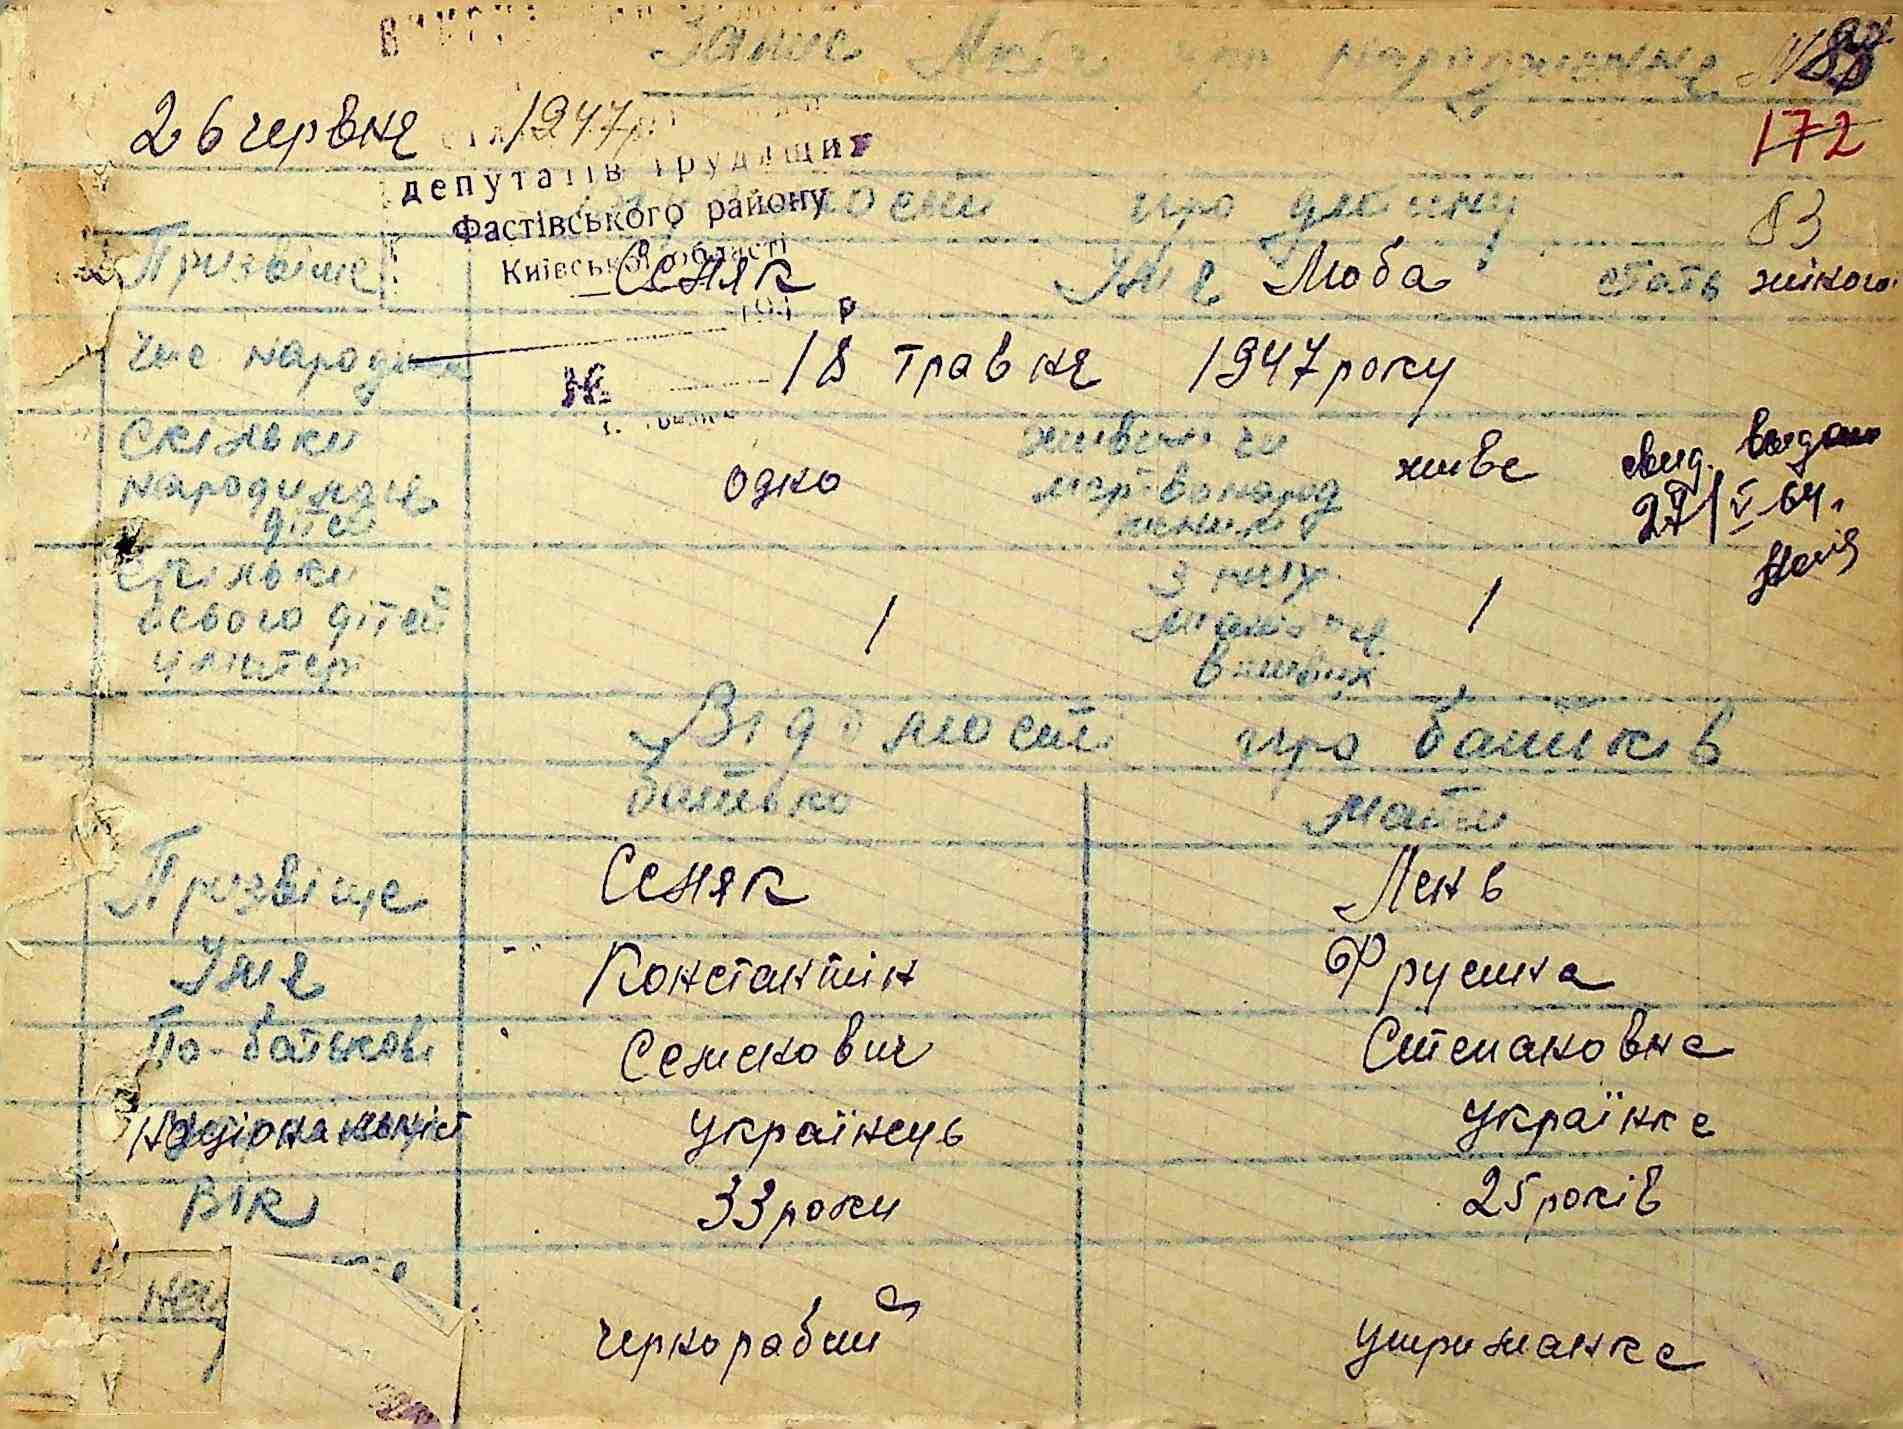 Запис Акта про народження № 83
172
26 червня 1947р.
депутатів трудящих
Фастівського району
Київської області
про дитину
83
Призвіще Сеняк Імя Люба стать жіночо
194 р
Час народж 18 травня 1947 року
№
Скільки народилося дітей одно живих чи мертвонародженим живе
свид. выдано
27/V 64.
Скільки всього дітей у матері 1 з них живих 1
Відомості про батьків
батько мати
Призвіще Сеняк Лень
Імя Константін Фрусина
По-батькові Семенович Степановна
Національніст українець українка
Вік 33 роки 25 років
чернорабий утриманка